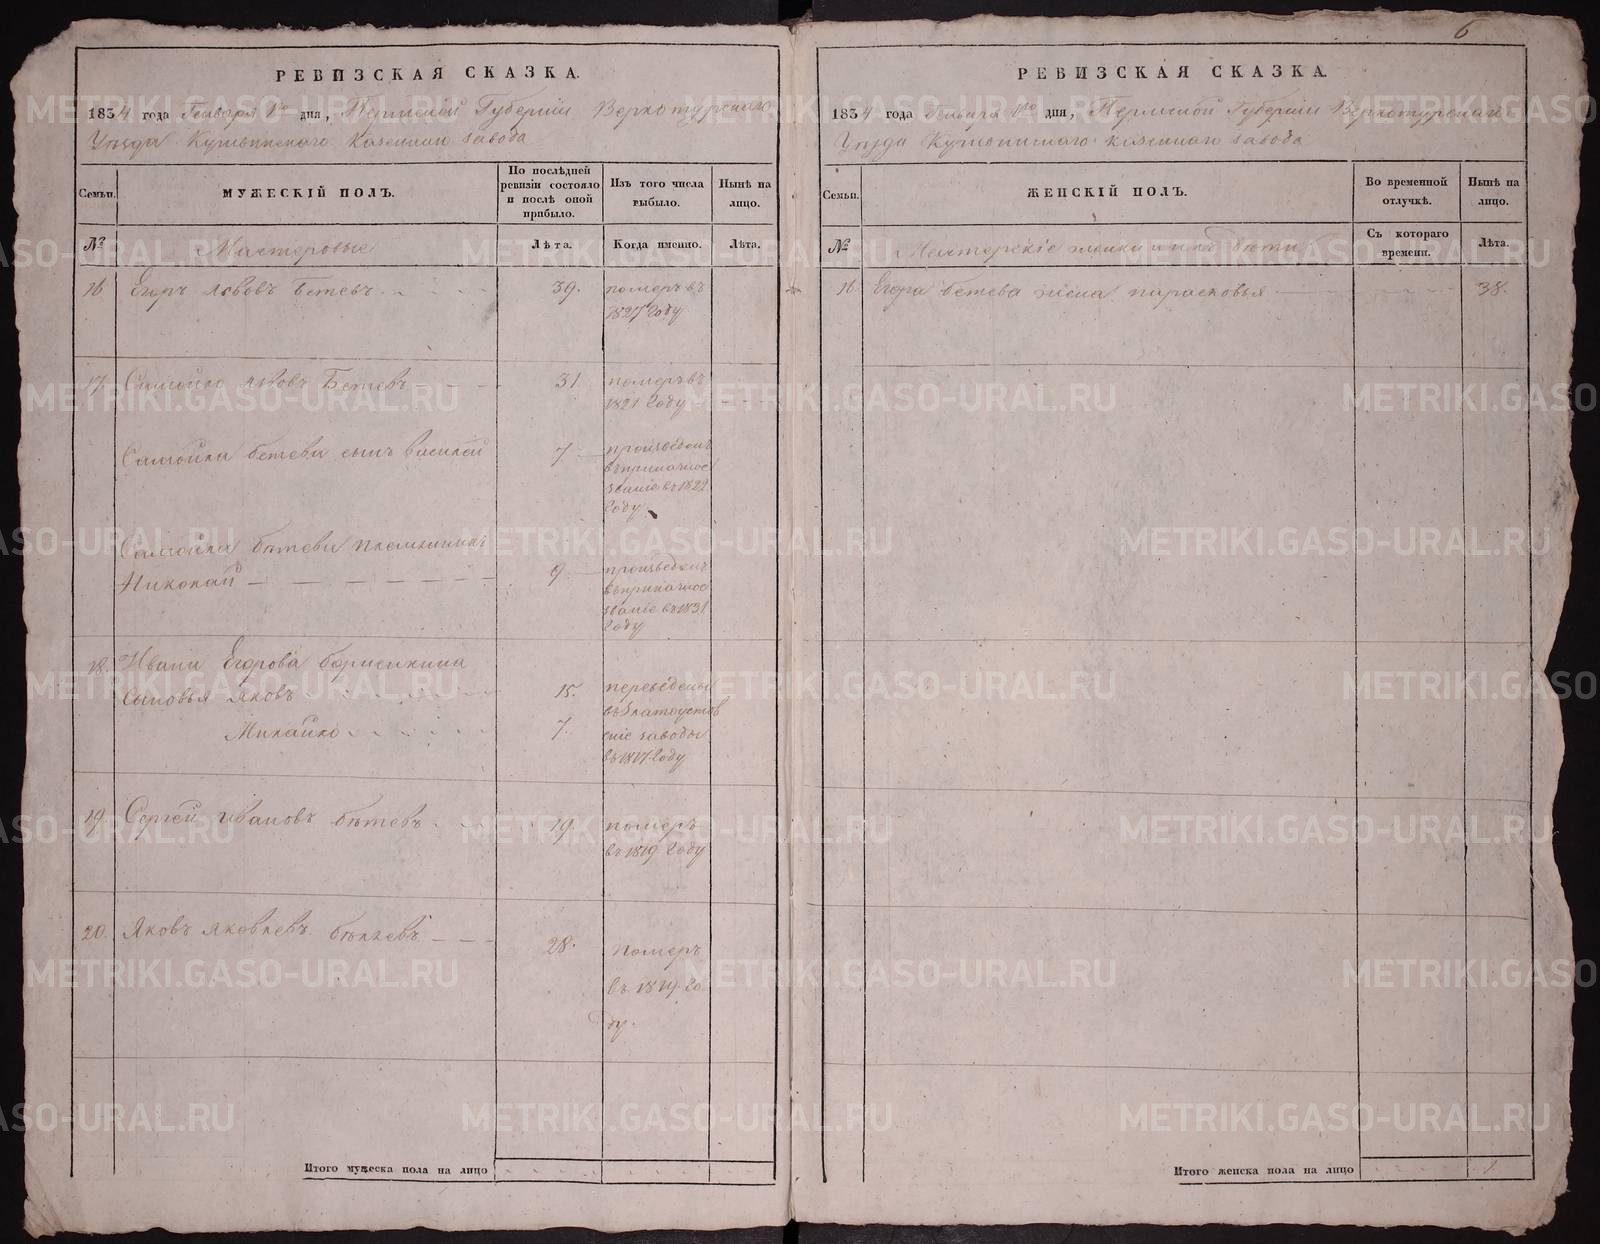 6
РЕВИЗСКАЯ СКАЗКА.
1834 года Генваря 1го дня, Пермской Губернiи Верхотурскаго
Уѣзда Кушвинскаго казеннаго завода
Семьи. МУЖЕСКIЙ ПОЛЪ. По послѣдней ревизiи состояло и послѣ оной прибыло. Изъ того числа выбыло. Нынѣ на лицо.
№ Мастеровые Лѣта. Когда именно. Лѣта.
16 Егоръ Львовъ Бетевъ 39. померъ въ
1827 году
17. Самойло Львовъ Бетевъ 31 померъ въ
1821 году
Самойлы Бетева сынъ Василей 7 произведенъ
въ приказное
званiе въ 1822
году
Самойлы Бѣтева племянникъ
Николай 9 произведенъ
въ приказное
званiе въ 1831
году
18. Ивана Егорова
Сыновья Яковъ 15. переведены
Михайло 7. въ Златоустов
скiе заводы
въ 1817 году
19. Сергей Ивановъ Бѣтевъ 19. померъ
въ 1819 году
20. Яковъ Яковлевъ 28. померъ
въ 1819. го
ду.
Итого мужеска пола на лицо
РЕВИЗСКАЯ СКАЗКА.
1834 года Генваря 1го дня, Пермской Губернiи Верхотурскаго
Уѣзда Кушвинскаго казеннаго завода
Семьи. ЖЕНСКIЙ ПОЛЪ. Во временной отлучкѣ. Нынѣ на лицо.
№ Мастерскiе женки и ихъ дѣти Съ котораго времени. Лѣта.
16. Егора Бетева жена Парасковья 38.
Итого женска пола на лицо 1
METRIKI.GASO-URAL.RU